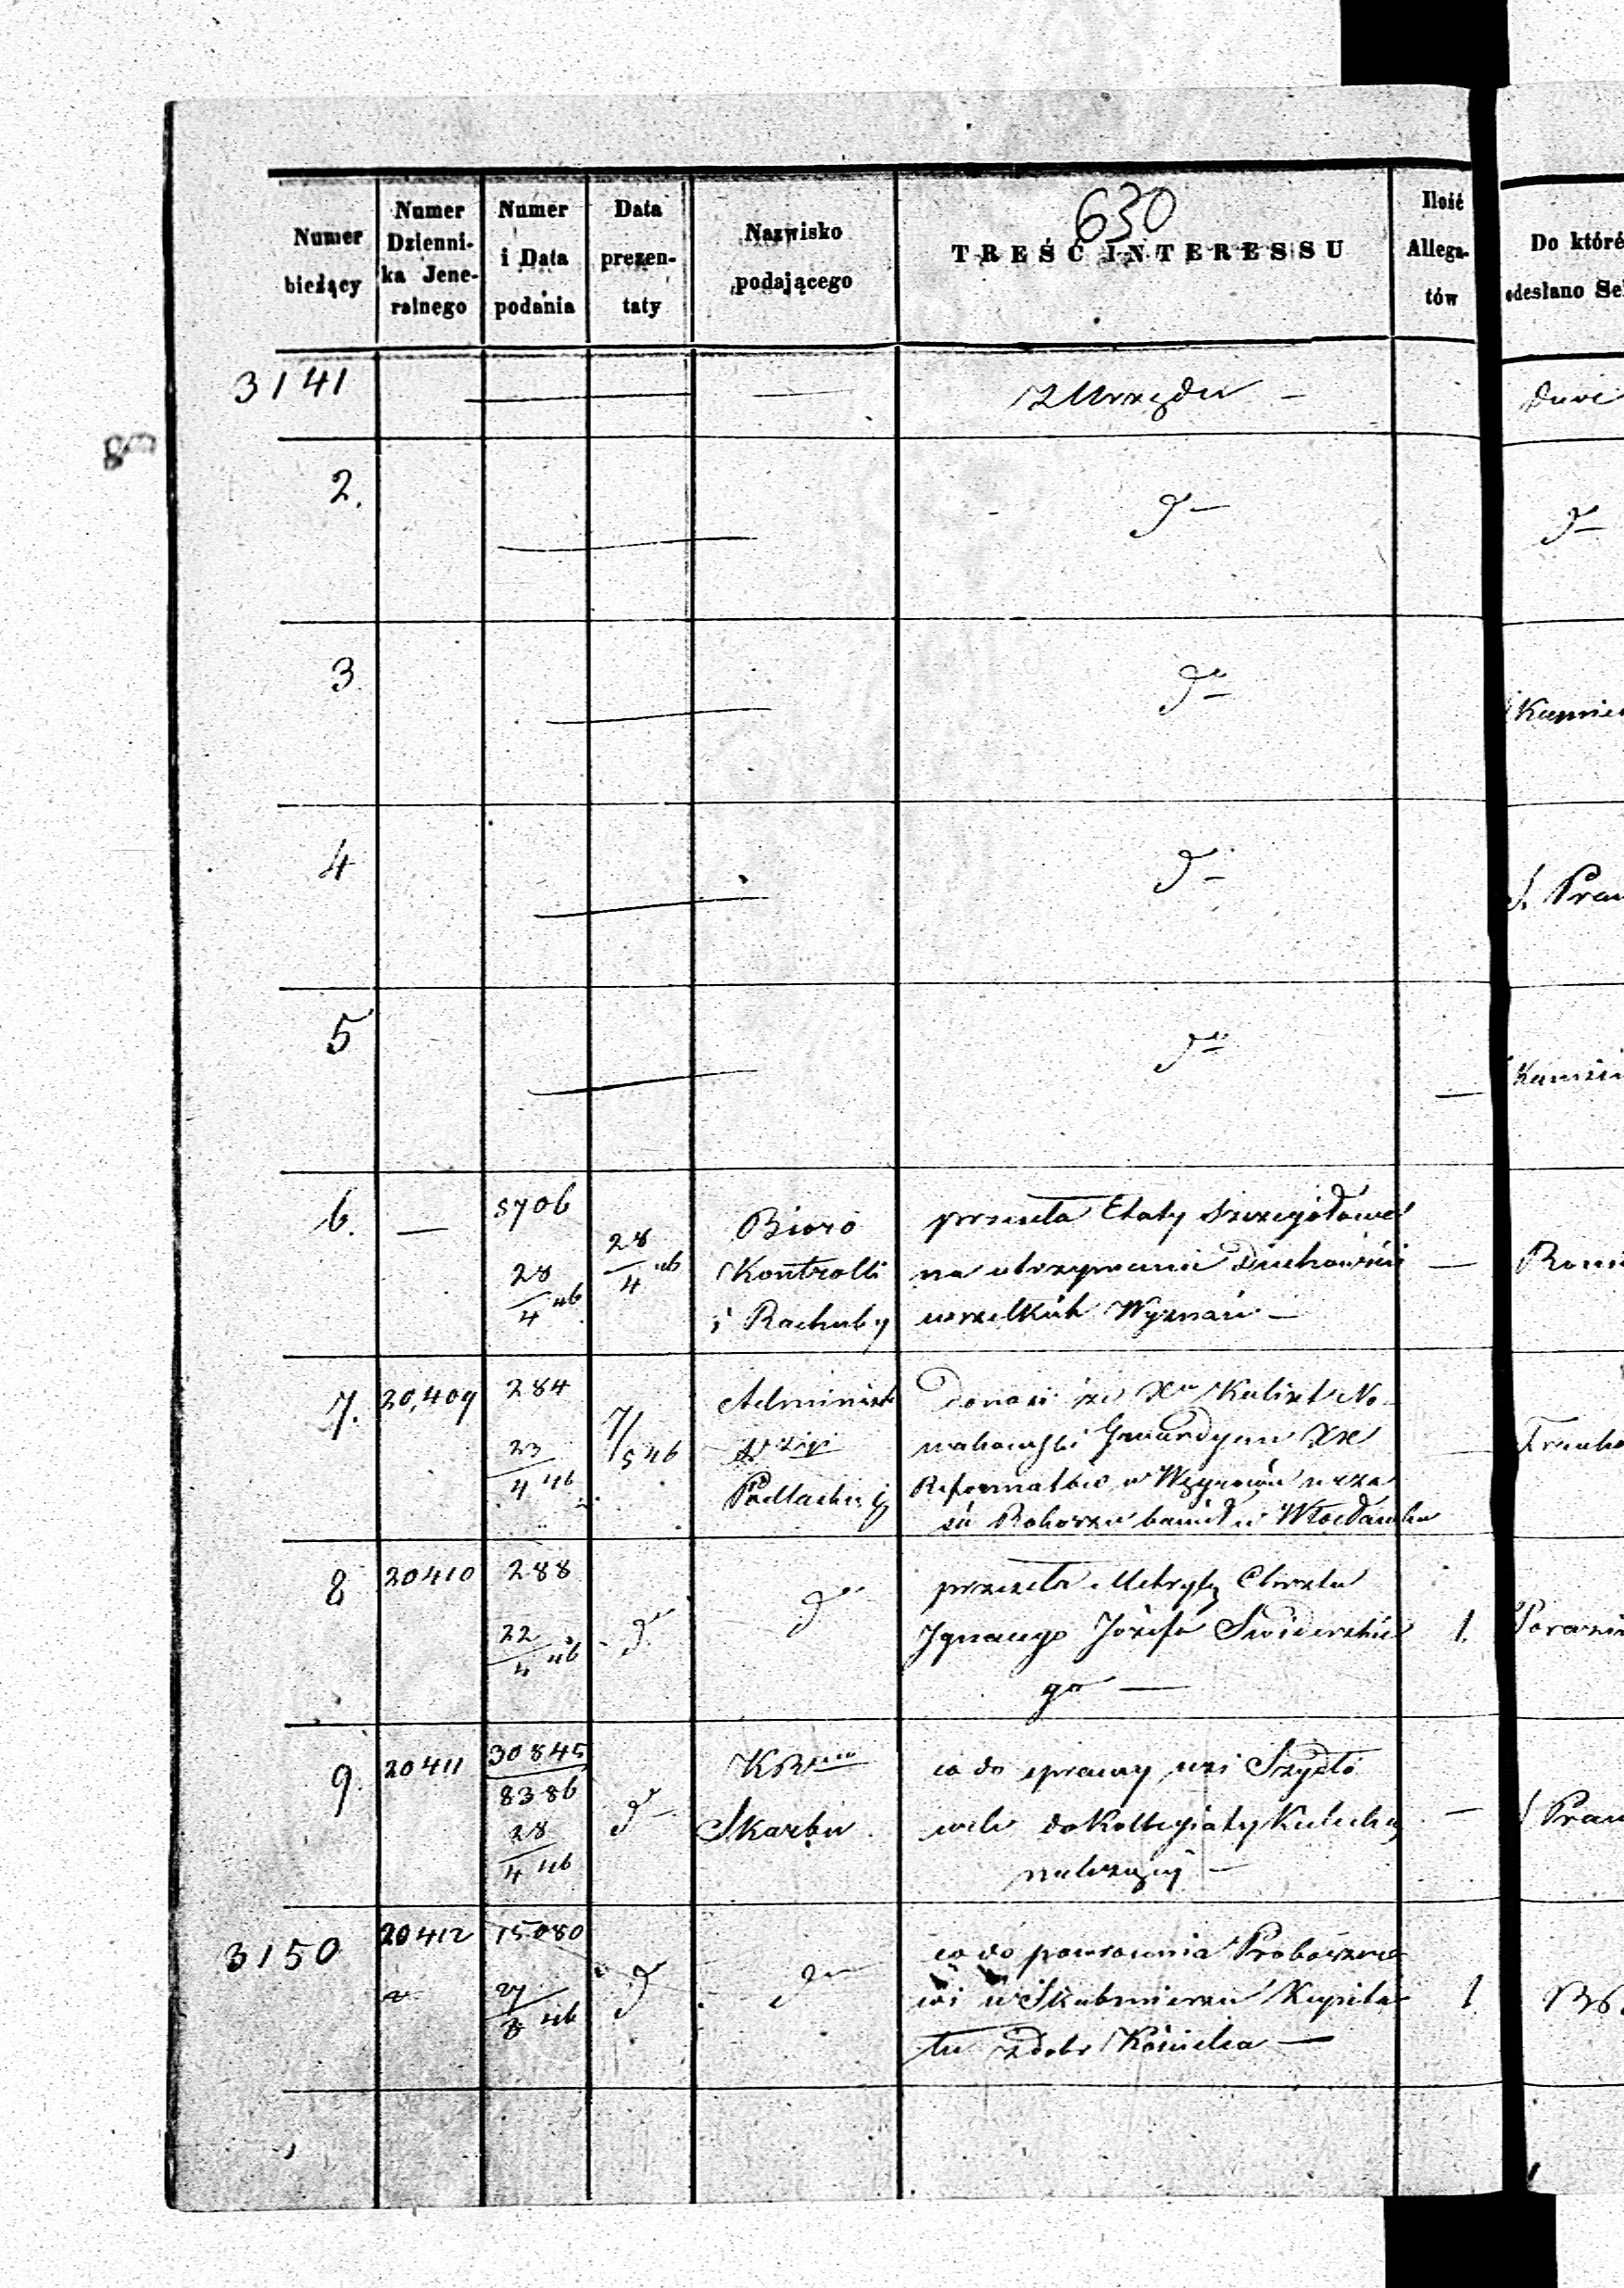 630
Numer bieżący
Numer Dzienni- ka Jene- ralnego
Numer i Data podania
Data prezen- taty
Nazwisko podającego
TREŚĆ INTERESSU
Ilość Allega- tów
Do któré
odesłano Se
3141 — — z Urzędu —
2. — d° —
3 — d°
4 — d°
5 — d° —
6. — 5706 28/4 46 28/4 46
Bioro
Kontrolli
i Rachuby
przesyła Etaty szczegółowe
na utrzymanie Duchowień
wszelkich Wyznań —
7. 20,409 284 23/4 46 7/5 46
Administr
Podlaskiej
Donosi że Xu Kalixt No-
wakowski Gwardyan XX
Reformatów w Węgrowie
Włodawku
8 20410 288 22/4 46 d° d°
przesyła Metrykę Chrztu
Ignacego Józefa Swiderskie
go —
1.
9. 20411 30845
8386
28/4 46 d°
Skarbu
co do sprawy wsi Szydło
do Kollegiaty Kieleckiej
należącej —
3150 20412 15080 27/3 46 d° d°
co do powrócenia Proboszczo
wi w Skalbmierzu Kapita
łu z dóbr Kościelca —
1